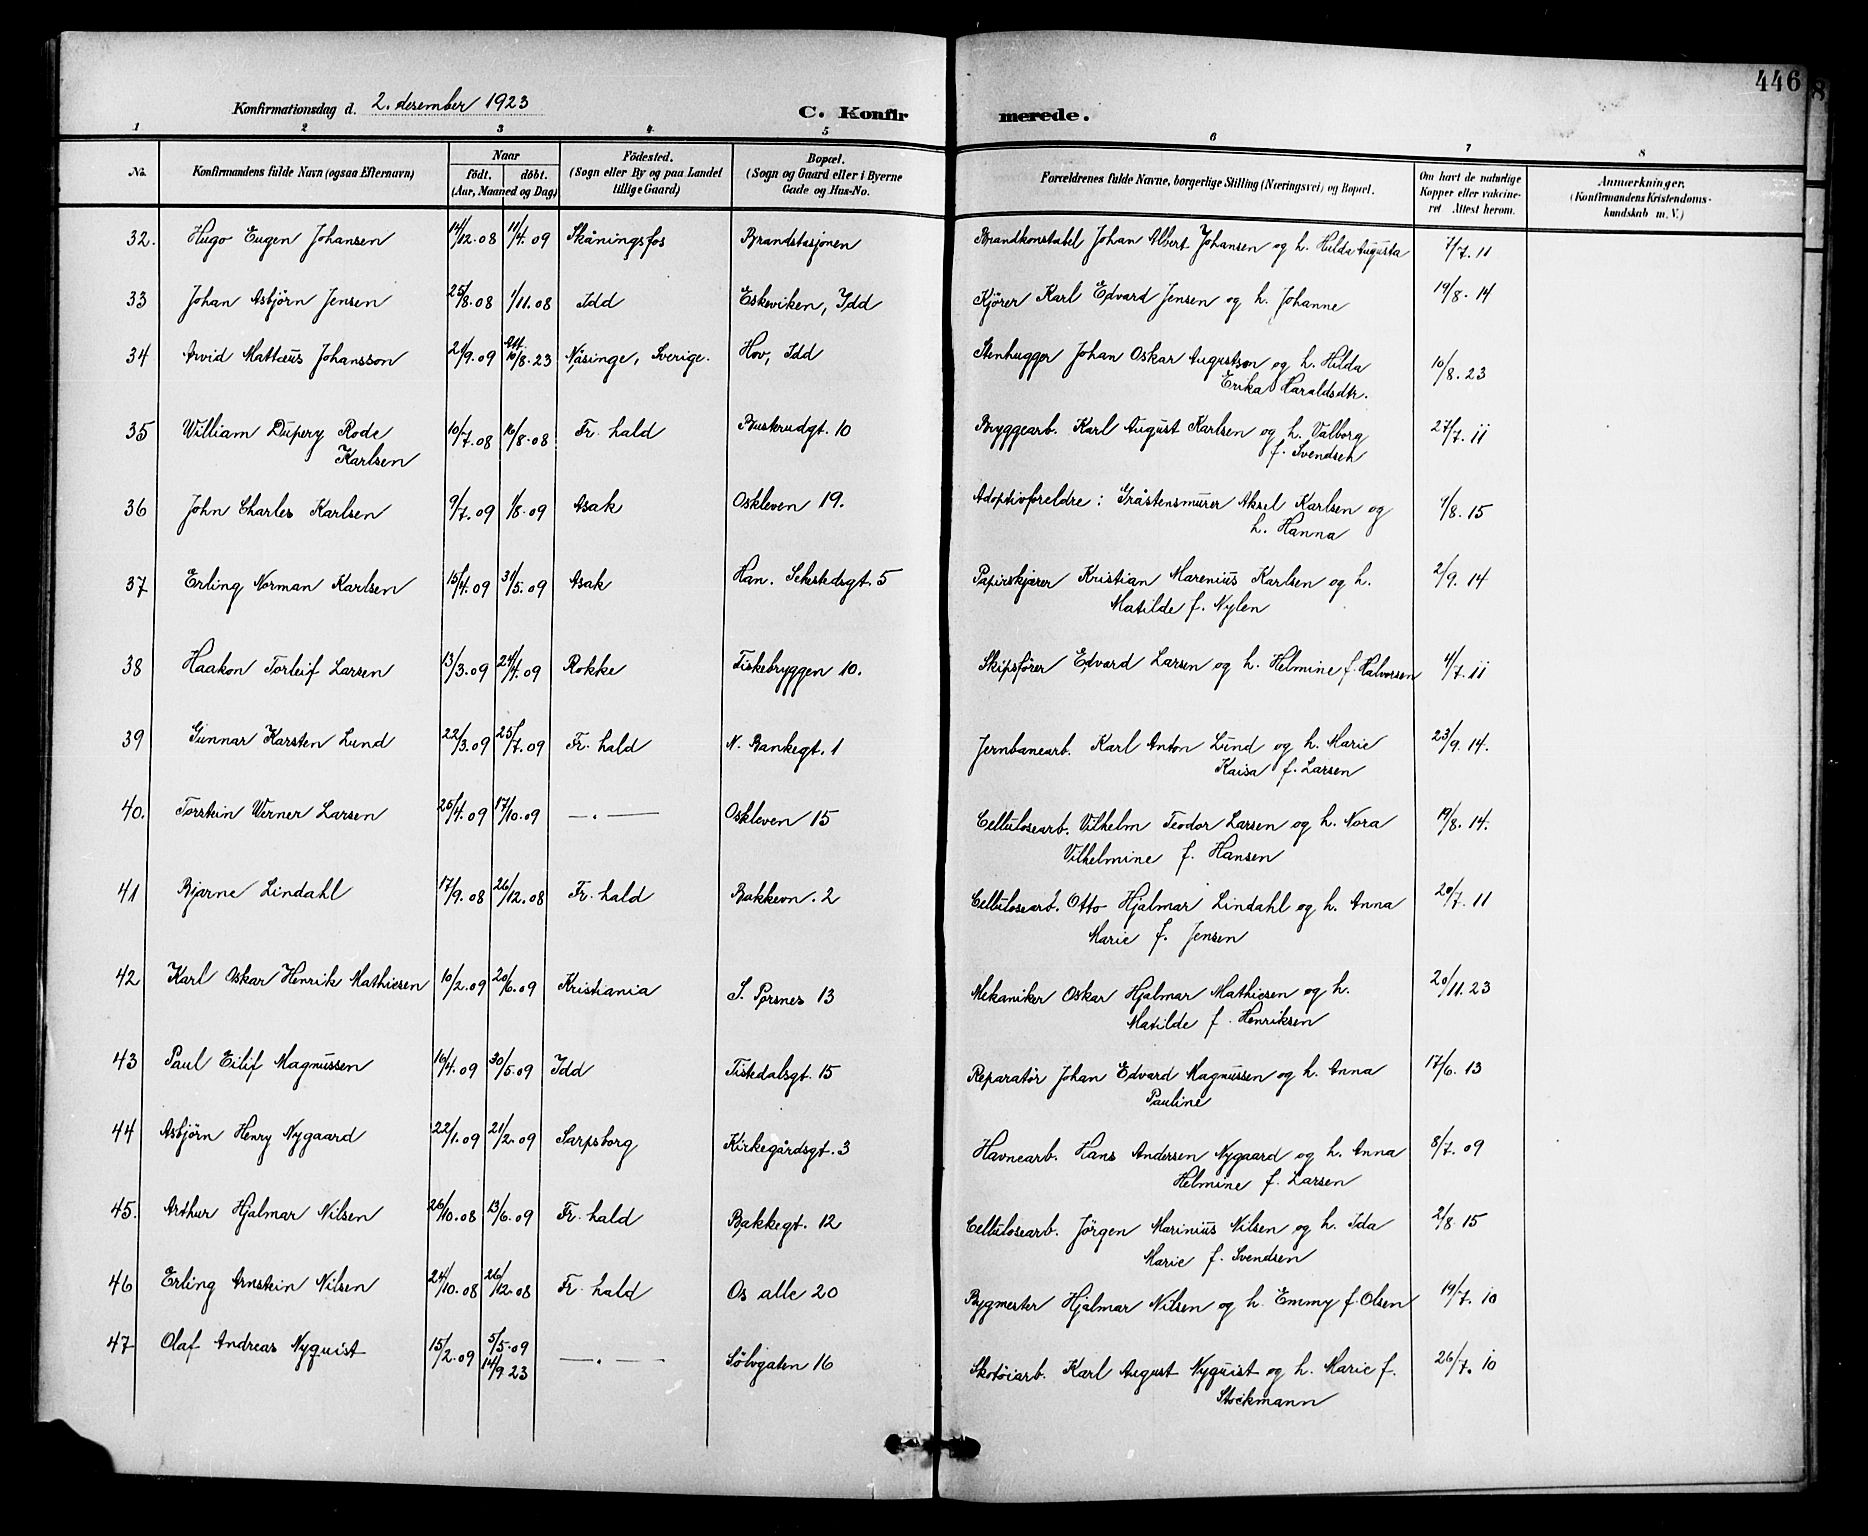 446
Konfirmationsdag d. 2. desember 1923
C. Konfir merede.
1 2 3 4 5 6 7 8
No. Konfirmandens fulde Navn (ogsaa Efternavn) Naar Födested. Bopæl. Forældrenes fulde Navne, borgerlige Stilling (Næringsvei) og Bopæl. Om havt de naturlige Anmærkninger.
födt. döbt. (Sogn eller By og paa Landet (Sogn og Gaard eller i Byerne Kopper eller vakcine- (Konfirmandens Kristendoms-
(Aar, Maaned og Dag) tillige Gaard) Gade og Hus-No. ret Attest herom. kundskab m. V.)
32. Hugo Eugen Johansen 14/12.08 11/4.09 Skåningsfos Brandstasjonen Brandkonstabl Johan Albert Johansen og h. Hulda Augusta 7/7.11
33 Johan Asbjörn Jensen 25/8.08 1/11.08 Idd Eskeviken, Idd Kjörer Karl Edvard Jensen og h. Johanne 19/8.14
34 Arvid Mattæus Johansson 21/9.09 10/8.23 Näsinge, Sverige. Hov, Idd Stenhugger Johan Oskar Augustson og h. Hilda 10/8.23
Erika Haraldsdtr.
35 William Dupery Rode 10/7.08 16/8.08 Fr. hald Buskrudgt. 10 Bryggearb. Karl August Karlsen og h. Valborg 27/7.11
Karlsen f. Svendsen
36 John Charles Karlsen 9/7.09 1/8.09 Asak Oskleven 19. Adoptivforeldre: Gråstensmurer Aksel Karlsen og 4/8.15
h. Hanna
37 Erling Norman Karlsen 15/4.09 31/5.09 Asak Han. Sehestedsgt. 5 Papirskjærer Kristian Marenius Karlsen og h. 2/9.14
Matilde f. Nylen
38 Haakon Torleif Larsen 13/3.09 24/4.09 Rokke Fiskebryggen 10. Skipsförer Edvard Larsen og h. Helmine f. Halvorsen 4/7.11
39 Gunnar Karsten Lund 22/3.09 25/7.09 Fr. hald N. Bankegt. 1 Jernbanearb. Karl Anton Lund og h. Marie 23/9.14.
Kaisa f. Larsen
40. Torstein Werner Larsen 25/4.09 17/10.09 —.— Oskleven 15 Cellulosearb. Vilhelm Teodor Larsen og h. Nora 19/8.14.
Vilhelmine f. Hansen
41 Bjarne Lindahl 17/9.08 26/12.08 Fr. hald Bakkevn. 2 Cellulosearb. Otto Hjalmar Lindahl og h. Anna 20/7.11
Marie f. Jensen
42 Karl Oskar Henrik Mathiesen 10/2.09 20/6.09 Kristiania S. Porsnes 13 Mekaniker Oskar Hjalmar Mathiesen og h. 20/11.23
Matilde f. Henriksen
43 Paul Eilif Magnussen 16/4.09 30/5.09 Idd Tistedalsgt. 15 Reparatör Johan Edvard Magnussen og h. Anna 17/6.13
Pauline
44 Asbjörn Henry Nygaard 22/1.09 21/2.09 Sarpsborg Kirkegårdsgt. 3 Havnearb. Hans Andersen Nygaard og h. Anna 8/7.09
Helmine f. Larsen
45. Arthur Hjalmar Nilsen 26/10.08 13/6.09 Fr. hald Bakkegt. 12 Cellulosearb. Jörgen Marinius Nilsen og h. Ida 2/8.15
Marie f. Svendsen
46 Erling Arnstein Nilsen 24/10.08 26/12.08 Fr. hald Os alle 20 Bygmester Hjalmar Nilsen og h. Emmy f. Olsen 19/7.10
47 Olaf Andreas Nyquist 15/2.09 5/5.09 —.— Sölvgaten 16 Skotöiarb. Karl August Nyquist og h. Marie f. 26/7.10
14/9 23 Stockmann